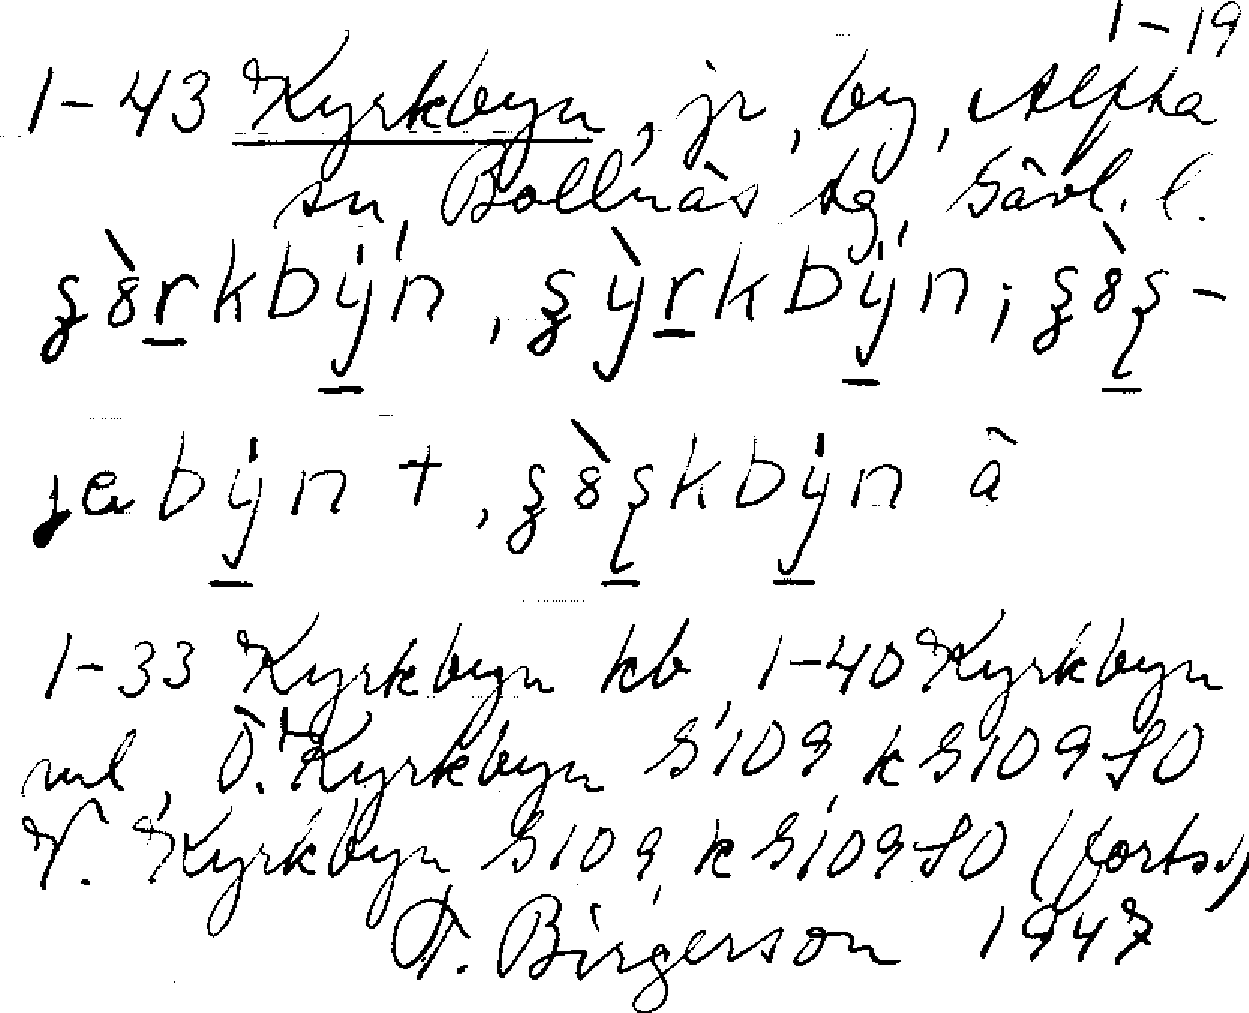 1-19
1-43 Kyrkbyn, jr, by, Alfta
sn, Bollnäs tg, Gävl. l.
kbýn, kbýn;
býn +, kbýn ä
1-33 Kyrkbyn kb, 1-40 Kyrkbyn
ml, Ö. Kyrkbyn G109, k G109 SO
V. Kyrkbyn G109, k G109 SO (forts.)
F. Birgerson 1947